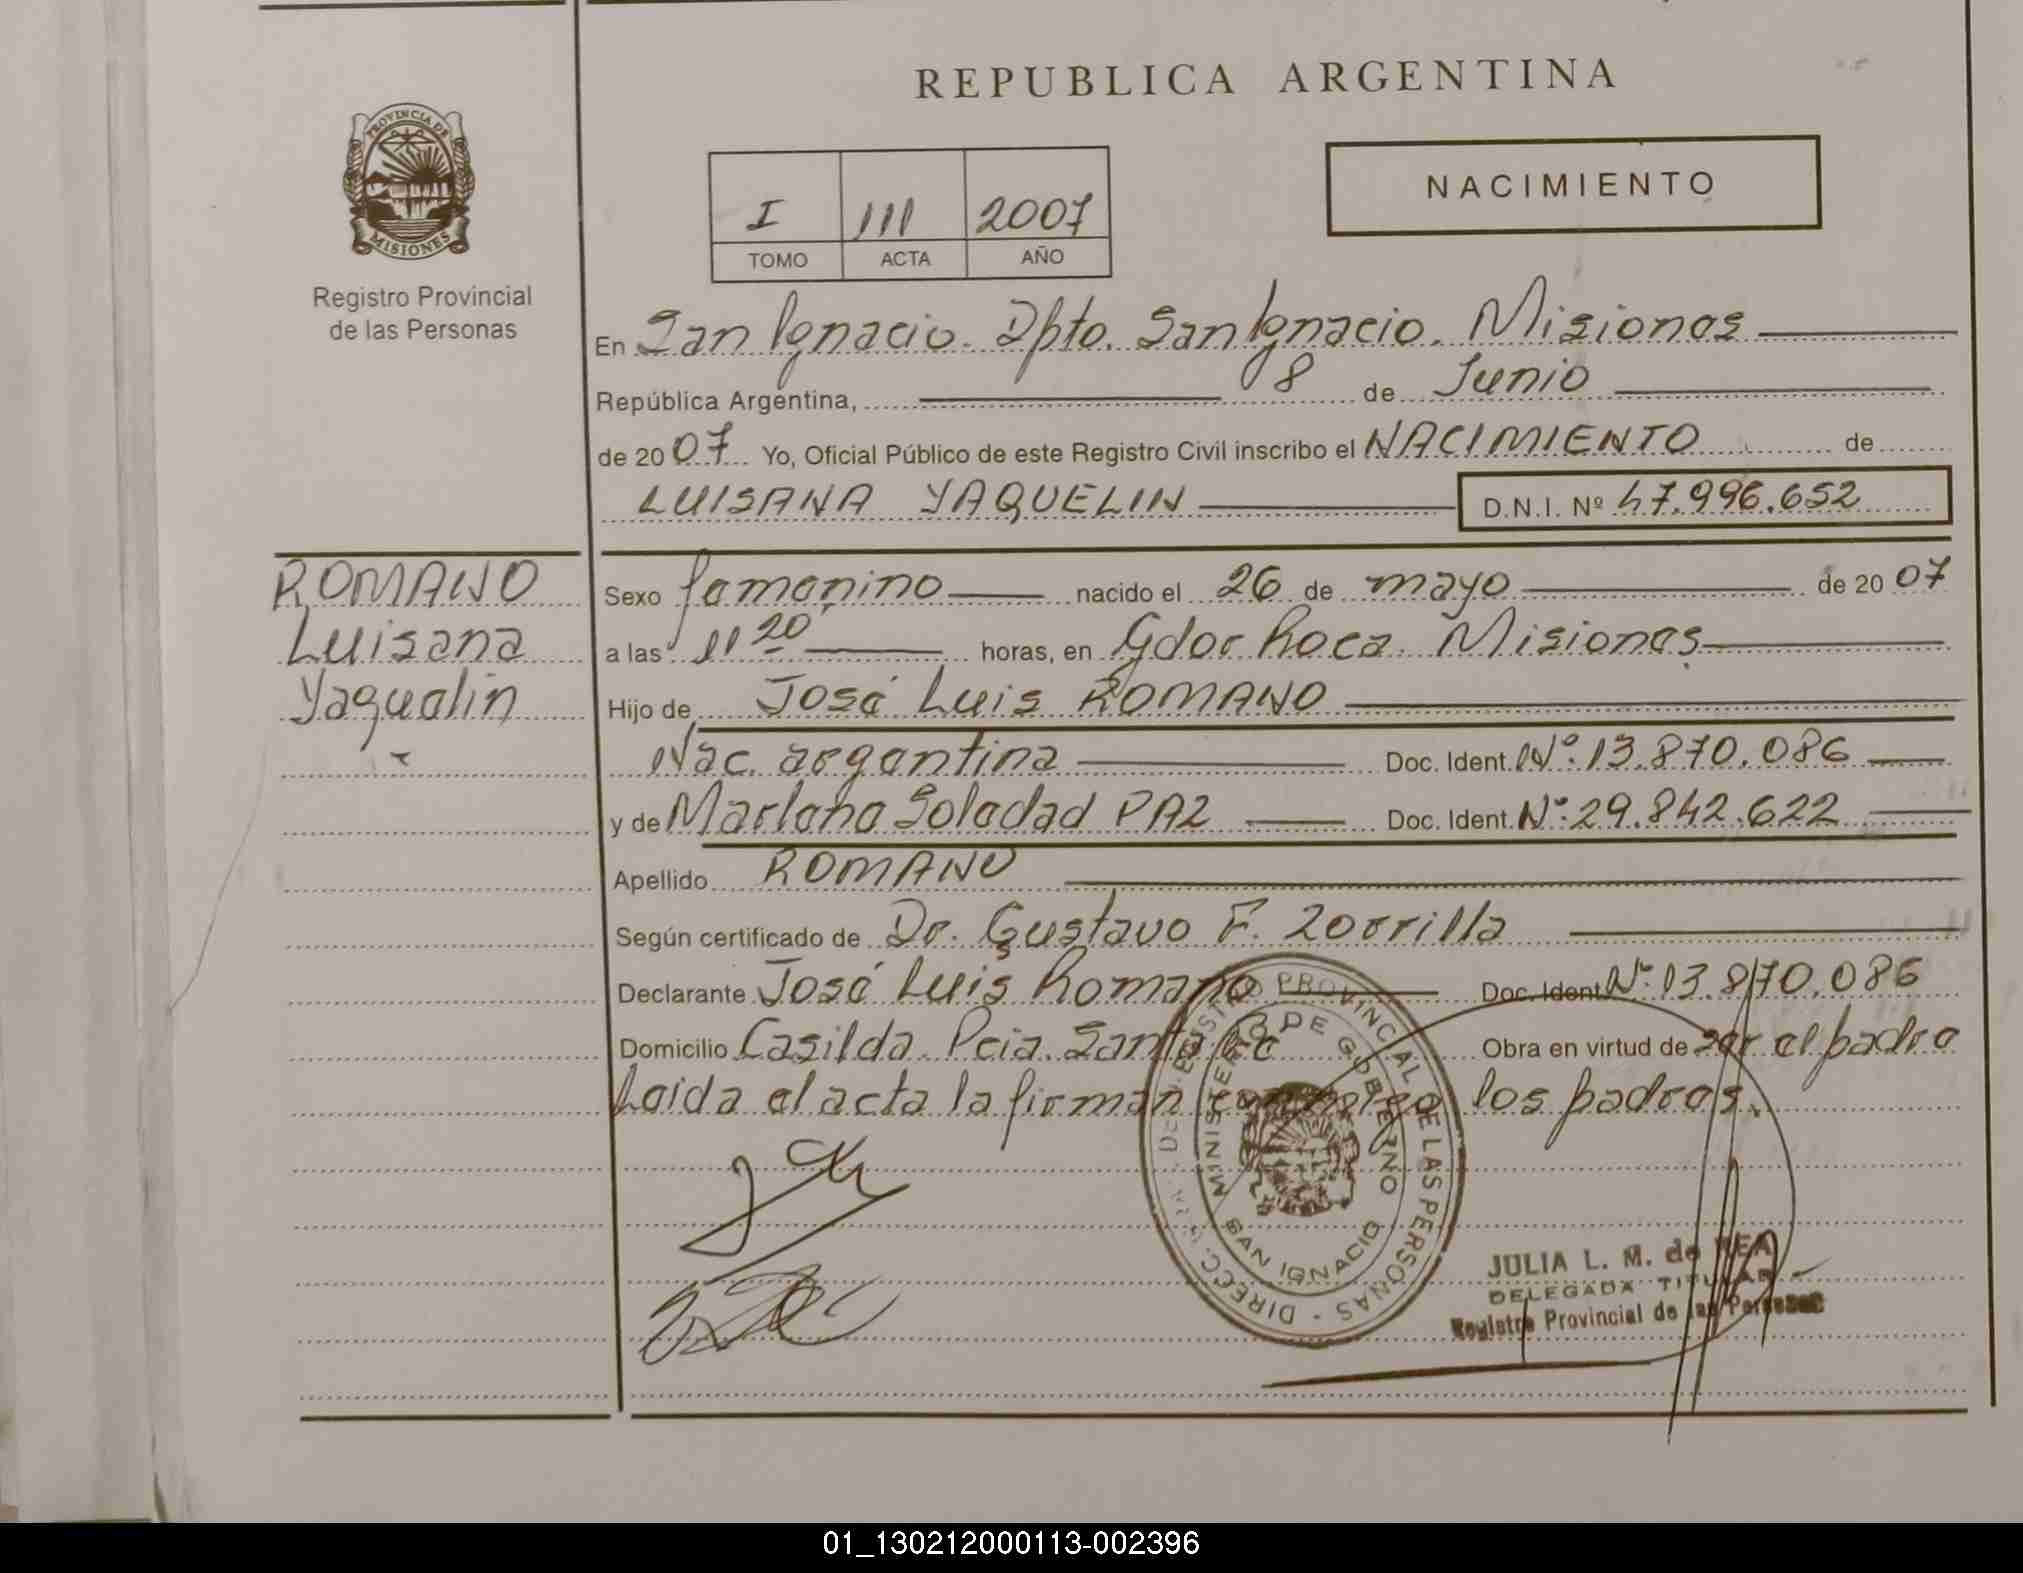 REPUBLICA ARGENTINA
PROVINCIA DE
MISIONES
Registro Provincial
de las Personas
NACIMIENTO
I 111 2007
TOMO ACTA AÑO
En San Ignacio. Dpto. San Ignacio. Misiones
República Argentina, 8 de Junio
de 2007 Yo, Oficial Público de este Registro Civil inscribo el NACIMIENTO de
LUISANA YAQUELIN D.N.I. Nº 47.996.652
ROMANO
Luisana
Yaquelin
Sexo femenino nacido el 26 de mayo de 2007
a las 11 20 horas, en Gdor Roca. Misiones
Hijo de José Luis ROMANO
Nac. argentina Doc. Ident. Nº 13.870.086
y de Marlene Soledad PAZ Doc. Ident. Nº 29.842.622
Apellido ROMANO
Según certificado de Dr. Gustavo F. Zorrilla
Declarante José Luis Romano Doc. Ident. Nº 13.870.086
Domicilio Casilda. Pcia. Santa Fe Obra en virtud de ser el padre
Leida el acta la firman conmigo los padres.
DIRECC. GRAL. DEL REGISTRO PROVINCIAL DE LAS PERSONAS
MINISTERIO DE GOBIERNO
SAN IGNACIO
JULIA L. M. de REA
DELEGADA TITULAR
Registro Provincial de las Personas
01_130212000113-002396